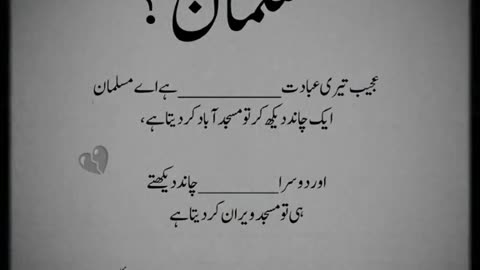 مسلمان ؟
عجیب تیری عبادت__________ہے اے مسلمان
ایک چاند دیکھ کر تو مسجد آباد کر دیتا ہے،
اور دوسرا________چاند دیکھتے
ہی تو مسجد ویران کر دیتا ہے